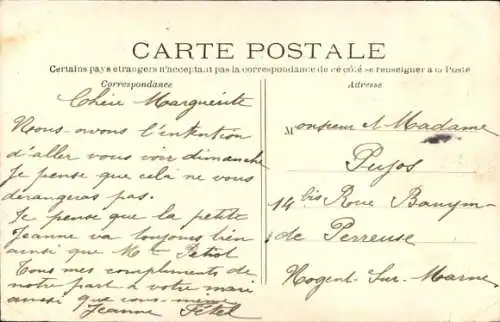 CARTE POSTALE
Certains pays etrangers n'acceptant pas la correspondance de ce côté se renseigner a la Poste
Correspondance
Adresse
Chère Marguerite
Nous avons l'intention
d'aller vous voir dimanche
Je pense que celà ne vous
dérangeras pas.
Je pense que la petite
Jeanne va toujours bien
ainsi que Mr
Tous mes compliments de
notre part à votre mari
ainsi que vous-même
Jeanne
Monsieur et Madame
Pujos
14 bis Roue
de Perreuse
Nogent-Sur-Marne